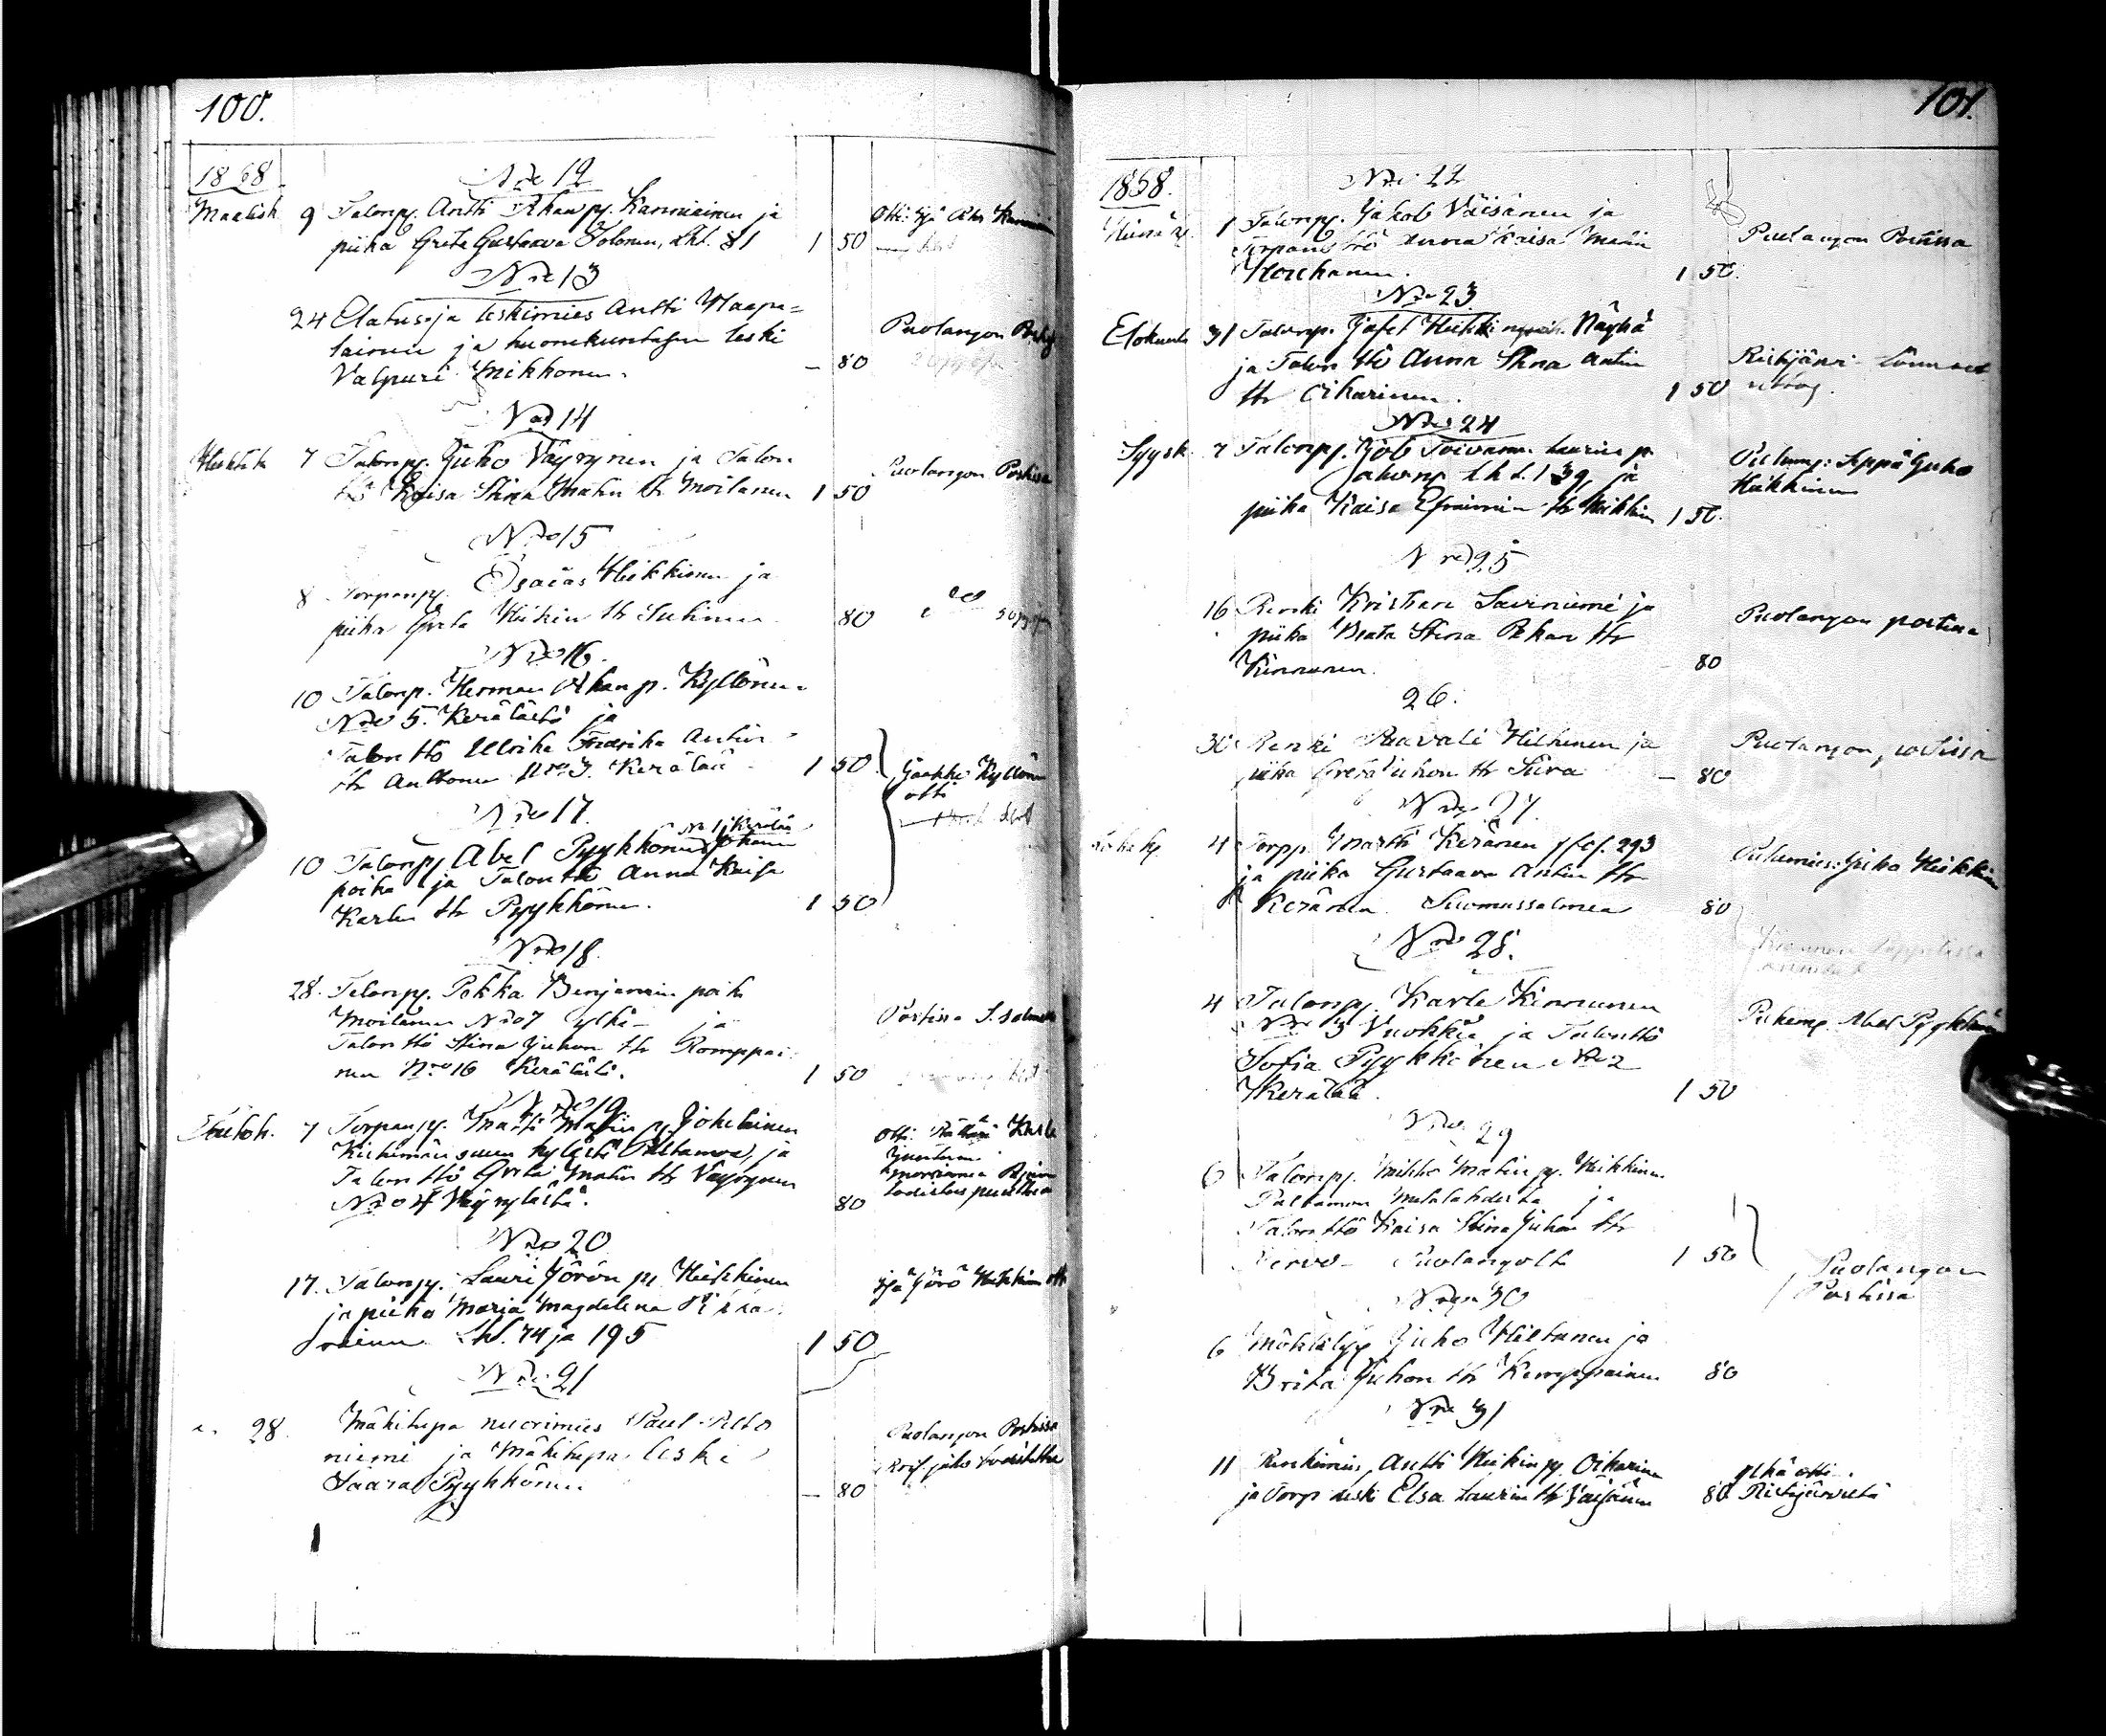 100.
1868
Nro 12
Maalisk. 9 Talonp. Antti Pekan p. Karwinen ja
piika Greta Gustaava Tolonen, Lhl. 81 1 50
Nro 13
24 Elatus ja leskimies Antti Haapa=
lainen ja huonekuntalaisen leski
Valpuri Mikkonen. – 80
Puolangon
Nro 14
Huhtik. 7 Talonp. Juho Väyrynen ja Talon
ttö Kaisa Stina Matin tr Moilanen 1 50
Puolangon Postissa
Nro 15
8 Torpanp. Esaias Heikkinen ja
piika Greta Heikin tr Suhinen 80
Nro 16.
10 Talonp. Herman Pekan p. Kyllönen.
Nro 5. Kerälästä ja
Talon ttö Ulrika Fredrika Antin
tr Anttonen Nro 3. Kerälää 1 50
Jaakko Kyllönen
otti
Nro 17.
Nr 1 Kerälä
10 Talonp. Abel Pyykkönen Johanin
poika ja Talon ttö Anna Kaisa
Karlin ttr Pyykkönen. 1 50
Nro 18.
28. Talonp. Pekka Benjamin poika
Moilanen Nro 7 ja
Talon ttö Stina Juhon tr Romppai-
nen Nro 16 Kerälästä. 1 50
Postissa S.salmelta
Nro 19
Toukok. 7 Torpanp. Matti Matin p. Jokelainen
kylästä Paltamoa, ja
Talon ttö Greta Matin tr Väyrynen
Nro 4 Väyrylästä. 80
otti Karle
Juntunen
Nro 20
17. Talonp. Lauri Yörön p. Heikkinen
ja piika Maria Magdalena
Lhl. 74 ja 195 1 50
isä Yörö Heikkinen otti
Nro 21
28. Mäkitupa nuorimies Paul Aito
niemi ja Mäkitupa leski
Saara Pyykkönen – 80
Puolangon Postissa
101.
1868.
Nro 22
Heinäk. 1 Talonp. Jakob Väisänen ja
Torpan ttö Anna Kaisa Matin
Horkanen. 1 50.
Puolangon Postissa
Nro 23
Elokuuta 31 Talonp. Jafet Heikki Näyhä
ja Talon ttö Anna Stina Antin
ttr Oikarinen. 1 50
Ristijärvi
Nro 24
Syysk. 7 Talonp. Job Toivanen Laurin p.
Lhl. 139, ja
piika Kaisa Efraimin tr Heikkinen 1 50.
Puhemp: Seppä Juho
Heikkinen
Nro 25
16 Renki Kristian Saviniemi ja
piika Beata Stina Pekan ttr
Kinnunen. – 80
Puolangon postissa
26.
30 Renki Paavali Hiltunen ja
piika Greta Juhon tr Siira – 80
Puolangon postissa
Nro 27.
Lokak. 4 Torpp. Martti Keränen 293
ja piika Gustaava Antin ttr
Keränen Suomussalmea 80
Puhemies: Juho Heikkinen
Nro 28.
4 Talonp. Karle Kinnunen
Nro 3 Vuokki ja Talonttö
Sofia Pyykkönen Nro 2
Kerälää. 1 50
Puhemp. Abel Pyykkönen
Nro 29
6 Talonp. Mikko Matin p. Heikkinen
Paltamon Melalahdesta ja
Talon ttö Kaisa Stina Juhon ttr
Puolangolta 1 50
Puolangon
Postissa
Nro 30
6 Juho Hiltunen ja
Brita Juhon tr Kemppainen 80
Nro 31
11 Renkimies Antti Heikin p. Oikarinen
ja Torp leski Elsa Laurin tr Väisänen 80.
otti
Ristijärveltä